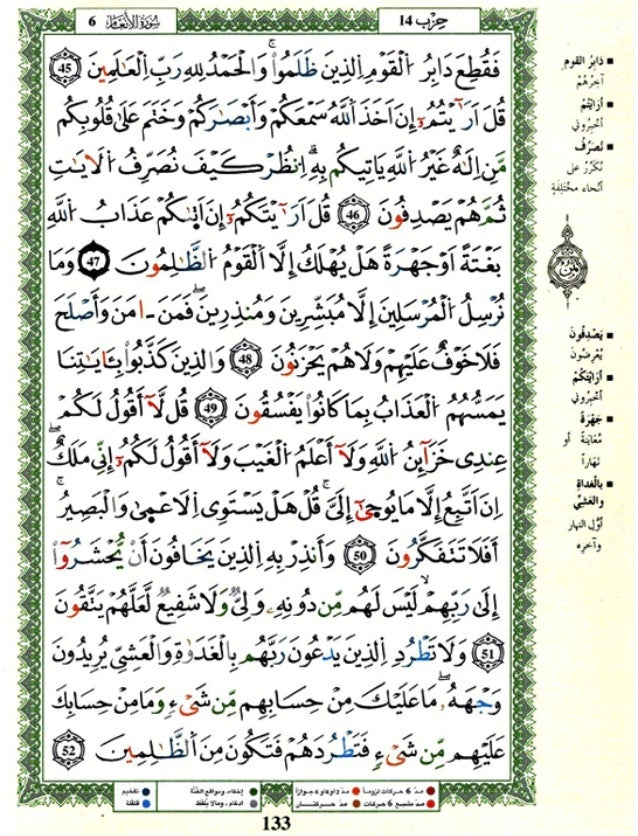 6 سُورَةُ الأَنْعَامِ
حِزْب 14
فَقُطِعَ دَابِرُ اُلْقَوْمِ اِلذِينَ ظَلَمُواْ وَالْحَمْدُ لِلهِ رَبِّ اِلْعَٰلَمِينَ 45
قُلَ اَرَٰٓيْتُمُۥٓ إِنَ اَخَذَ اَللَّهُ سَمْعَكُمْ وَأَبْصَٰرَكُمْ وَخَتَمَ عَلَىٰ قُلُوبِكُم
مَّنِ اِلَٰهٌ غَيْرُ اُللَّهِ يَاتِيكُم بِهِۖ اِنظُرْ كَيْفَ نُصَرِّفُ اُلَايَٰتِ
ثُمَّ هُمْ يَصْدِفُونَ 46 قُلَ اَرَٰٓيْتَكُمُۥٓ إِنَ اَتٰىكُمْ عَذَابُ اُللَّهِ
بَغْتَةً اَوْ جَهْرَةً هَلْ يُهْلَكُ إِلَّا اَلْقَوْمُ اُلظَّٰلِمُونَ 47 وَمَا
نُرْسِلُ اُلْمُرْسَلِينَ إِلَّا مُبَشِّرِينَ وَمُنذِرِينَۖ فَمَنَ ـ امَنَ وَأَصْلَحَ
فَلَا خَوْفٌ عَلَيْهِمْ وَلَا هُمْ يَحْزَنُونَ 48 وَالذِينَ كَذَّبُواْ بِـَٔايَٰتِنَا
يَمَسُّهُمُ اُلْعَذَابُ بِمَا كَانُواْ يَفْسُقُونَ 49 قُل لَّآ أَقُولُ لَكُمْ
عِندِى خَزَآئِنُ اُللَّهِ وَلَآ أَعْلَمُ اُلْغَيْبَ وَلَآ أَقُولُ لَكُمُۥٓ إِنِّى مَلَكٌۖ
اِنَ اَتَّبِعُ إِلَّا مَا يُوحَىٰٓ إِلَىَّۚ قُلْ هَلْ يَسْتَوِى اِلَاعْمَىٰ وَالْبَصِيرُۚ
أَفَلَا تَتَفَكَّرُونَ 50 وَأَنذِرْ بِهِ اِلذِينَ يَخَافُونَ أَنْ يُّحْشَرُوٓاْ
إِلَىٰ رَبِّهِمْ لَيْسَ لَهُم مِّن دُونِهِۦ وَلِىٌّ وَلَا شَفِيعٌ لَّعَلَّهُمْ يَتَّقُونَ
51 وَلَا تَطْرُدِ اِلذِينَ يَدْعُونَ رَبَّهُم بِالْغَدَوٰةِ وَالْعَشِىِّ يُرِيدُونَ
وَجْهَهُۥۖ مَا عَلَيْكَ مِنْ حِسَابِهِم مِّن شَىْءٍ وَمَا مِنْ حِسَابِكَ
عَلَيْهِم مِّن شَىْءٍ فَتَطْرُدَهُمْ فَتَكُونَ مِنَ اَلظَّٰلِمِينَ 52
دَابِرُ القوم
آخِرُهُمْ
أَرَايْتُمْ
أَخْبِرُونِي
نُصَرِّفُ
نُكَرِّرُ على
أنحاء مختلِفَةٍ
ثمن
يَصْدِفُونَ
يُعْرِضُونَ
أَرَايْتَكُمْ
أَخْبِرُونِي
جَهْرَةً
مُعَايَنَةً أو
نَهَاراً
بِالْغَداةِ
والعَشِيِّ
أوّل النهار
وآخره
مدّ 6 حركات لزوماً
مدّ 2 أو 4 أو 6 جوازاً
إخفاء، ومواقع الغُنَّة
تفخيم
مدّ مشبع 6 حركات
مدّ حركتان
إدغام، وما لا يُلفظ
قلقلة
133